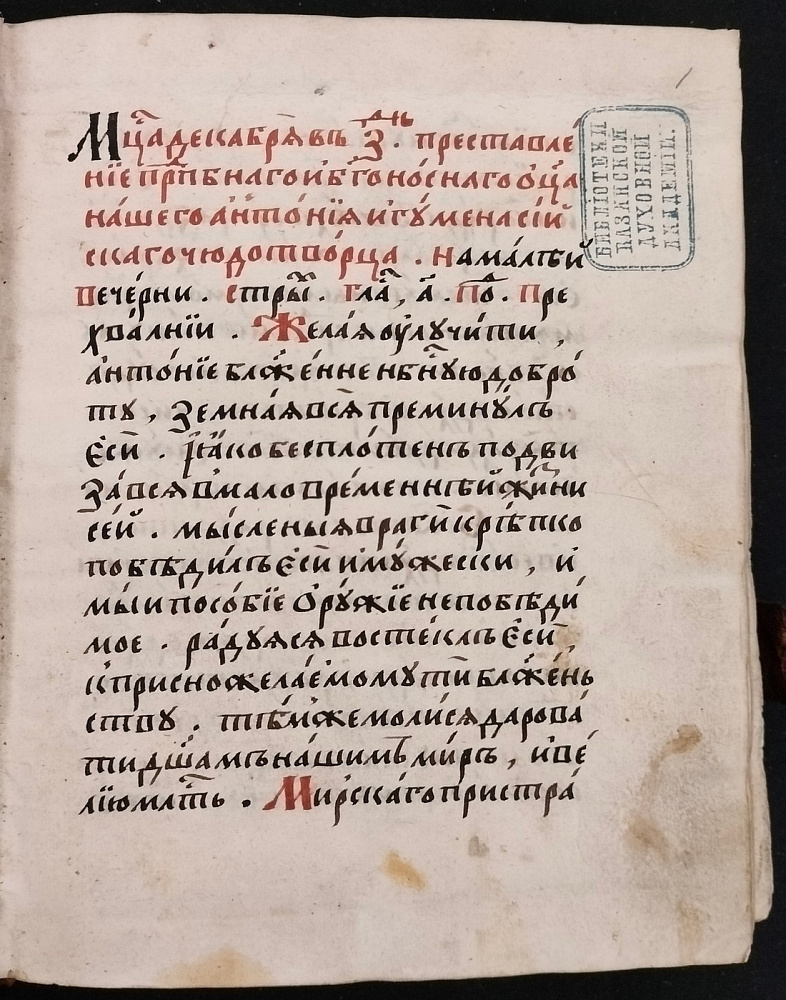 Мц҃а декабрѧ въ З҃ дн҃ь . преставле́
нїе прп҃бнаго и҆ бг҃оно́снаго ѻ҆ц҃а̀
на́шего а҆нто́нїѧ и҆гу́мена сі́й
скаго чюдотво́рца . на ма́лѣй
вече́рни . стрⷯы . гла҃ , а҃ . по́д . Пре
хва́лнїи . Жела́ѧ ѹ҆лучи́ти ,
а҆нто́нїе блаже́нне нбⷭ҇ную добро́
ту , земна́ѧ всѧ̀ преминꙋ́лъ
є҆сѝ . ꙗ҆́ко беспло́тенъ подви
за́всѧ в мало вре́меннѣй жи́зни
се́й . мы́сленыѧ врагѝ крѣ́пко
побѣди́лъ є҆сѝ и҆ мꙋ́жески , и҆
мы́и посо́бїе ѻ҆рꙋ́жїе непобѣди́
мое . ра́дуѧсѧ востекл́ъ є҆сѝ ,
к присно жела́емому тѝ блаже́нь
ству . тѣ́мже моли́сѧ дарова́
ти дш҃а́мъ на́шимъ ми́ръ , и҆ ве́
лїю млⷭ҇ть . Мирска́го пристра́
БИБЛІОТЕКИ
КАЗАНСКОЙ
ДУХОВНОЙ
АКАДЕМІИ.